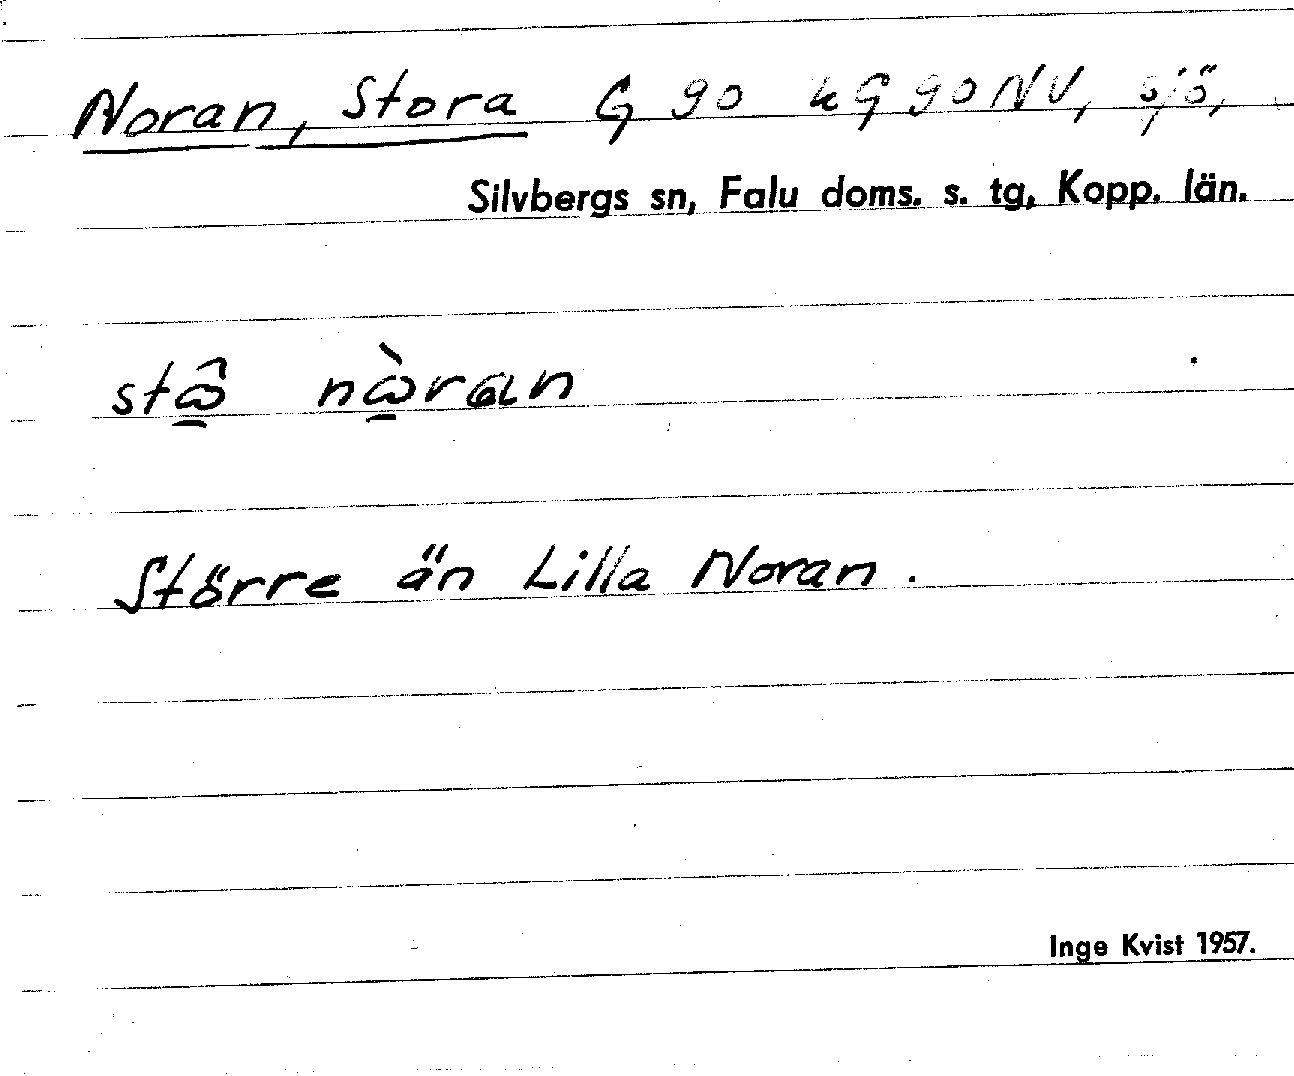 Noran, Stora G 90 kG 90 NV, sjö,
Silvbergs sn, Falu doms. s. tg, Kopp. län.
Större än Lilla Noran.
Inge Kvist 1957.